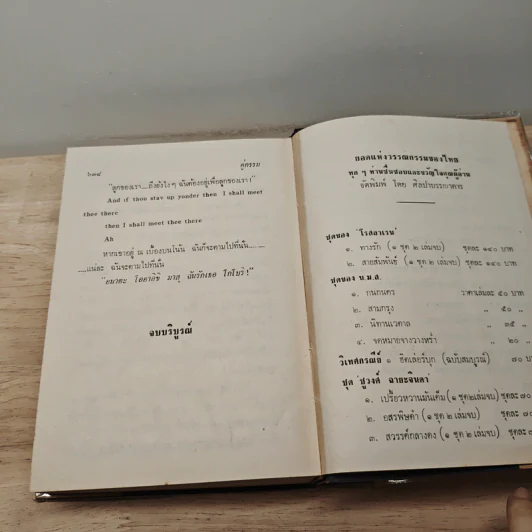 ๖๓๘
คู่กรรม
"ลูกของเรา....ถึงยังไงๆ ฉันต้องอยู่เพื่อลูกของเรา!"
And if thou stay up yonder then I shall meet
thee there
then I shall meet thee there
Ah
หากเธออยู่ ณ เบื้องบนโน้น ฉันก็จะตามไปที่นั้น........
.....แน่ละ ฉันจะตามไปที่นั้น
"อนาตะ โอคาอิชิ มาสุ ฉันรักเธอ โกโบริ!"
จบบริบูรณ์
ยอดแห่งวรรณกรรมของไทย
ทุก ๆ ท่านชื่นชอบและขวัญใจทุกนักอ่าน
จัดพิมพ์ โดย ศิลปาบรรณาคาร
ชุดของ "โรสลาเรน"
๑. ทางรัก (๑ ชุด ๒ เล่มจบ) ชุดละ ๑๔๐ บาท
๒. สายสัมพันธ์ (๑ ชุด ๒ เล่มจบ) ชุดละ ๑๔๐ บาท
ชุดของ น.ม.ส.
๑. กนกนคร ราคาเล่มละ ๔๐ บาท
๒. สามกรุง " ๕๐ "
๓. นิทานเวตาล " ๓๕ "
๔. จดหมายจางวางหร่ำ " ๒๐ "
วิเทศกรณีย์ ๑ ฮิตเล่อร์บุก (ฉบับสมบูรณ์) ๗๐ บา
ชุด "ชูวงศ์ ฉายะจินดา"
๑. เปรี้ยวหวานมันเค็ม (๑ ชุด ๒ เล่มจบ) ชุดละ ๗๐
๒. อสรพิษดำ (๑ ชุด ๒ เล่มจบ) ชุดละ ๘๐
๓. สวรรค์กลางดง (๑ ชุด ๒ เล่มจบ) ชุดละ